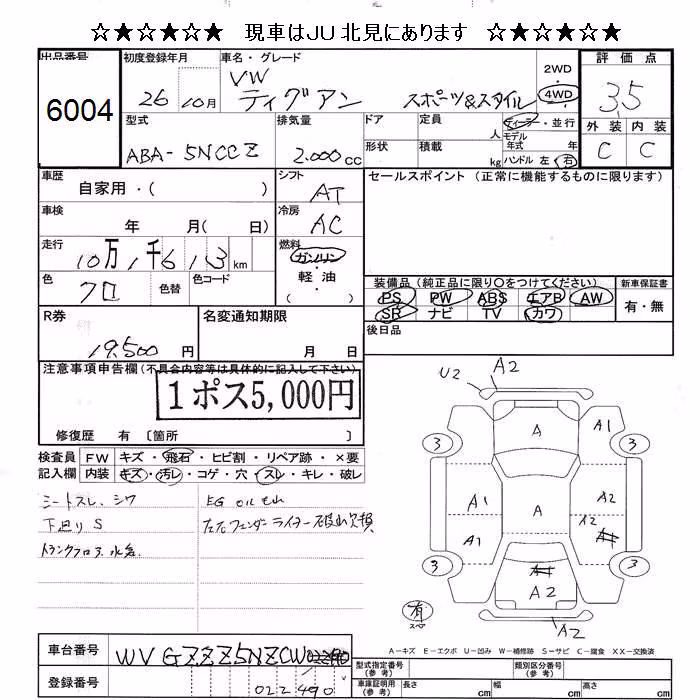 ☆★☆★☆★ 現車はJU北見にあります ☆★☆★☆★
出品番号
6004
初度登録年月
26 年 10月
車名・グレード
VW
ティグアン スポーツ&スタイル
2WD
4WD
評価点
3.5
外装 内装
C C
型式
ABA-5NCCZ
排気量
2.000cc
ドア
定員
人
形状
積載
kg
ディーラー・並行
モデル年式 年式
ハンドル 左 右
車歴
自家用・( )
シフト
AT
セールスポイント(正常に機能するものに限ります)
車検
年 月( 日)
冷房
AC
走行
10万1千613km
燃料
ガソリン
・
軽油
( )
色
クロ
色替
色コード
装備品(純正品に限り○をつけてください)
PS PW ABS エアB AW
SR ナビ TV カワ
新車保証書
有・無
R券
19,500円
名変通知期限
月 日
後日品
注意事項申告欄(不具合内容等は具体的に記入して下さい)
1ポス5,000円
修復歴 有 〔箇所 〕
検査員
記入欄
FW キズ・飛石・ヒビ割・リペア跡・×要
内装 キズ・汚レ・コゲ・穴・スレ・キレ・破レ
シートスレ、シワ
下廻りS
トランクフロア
EGオイルモレ
フェンダーライナー破れ欠損
U2
A2
A
A1
3
3
A1
A
A2
A1
A2
3
3
A2
有
スペア
A2
A-キズ E-エクボ U-凹み W-補修跡 S-サビ C-腐食 XX-交換済
車台番号
WVGZZZ5NZCW
登録番号
022490
型式指定番号(参考)
類別区分番号(参考)
車庫証明用(参考)
長さ cm
幅 cm
高さ cm